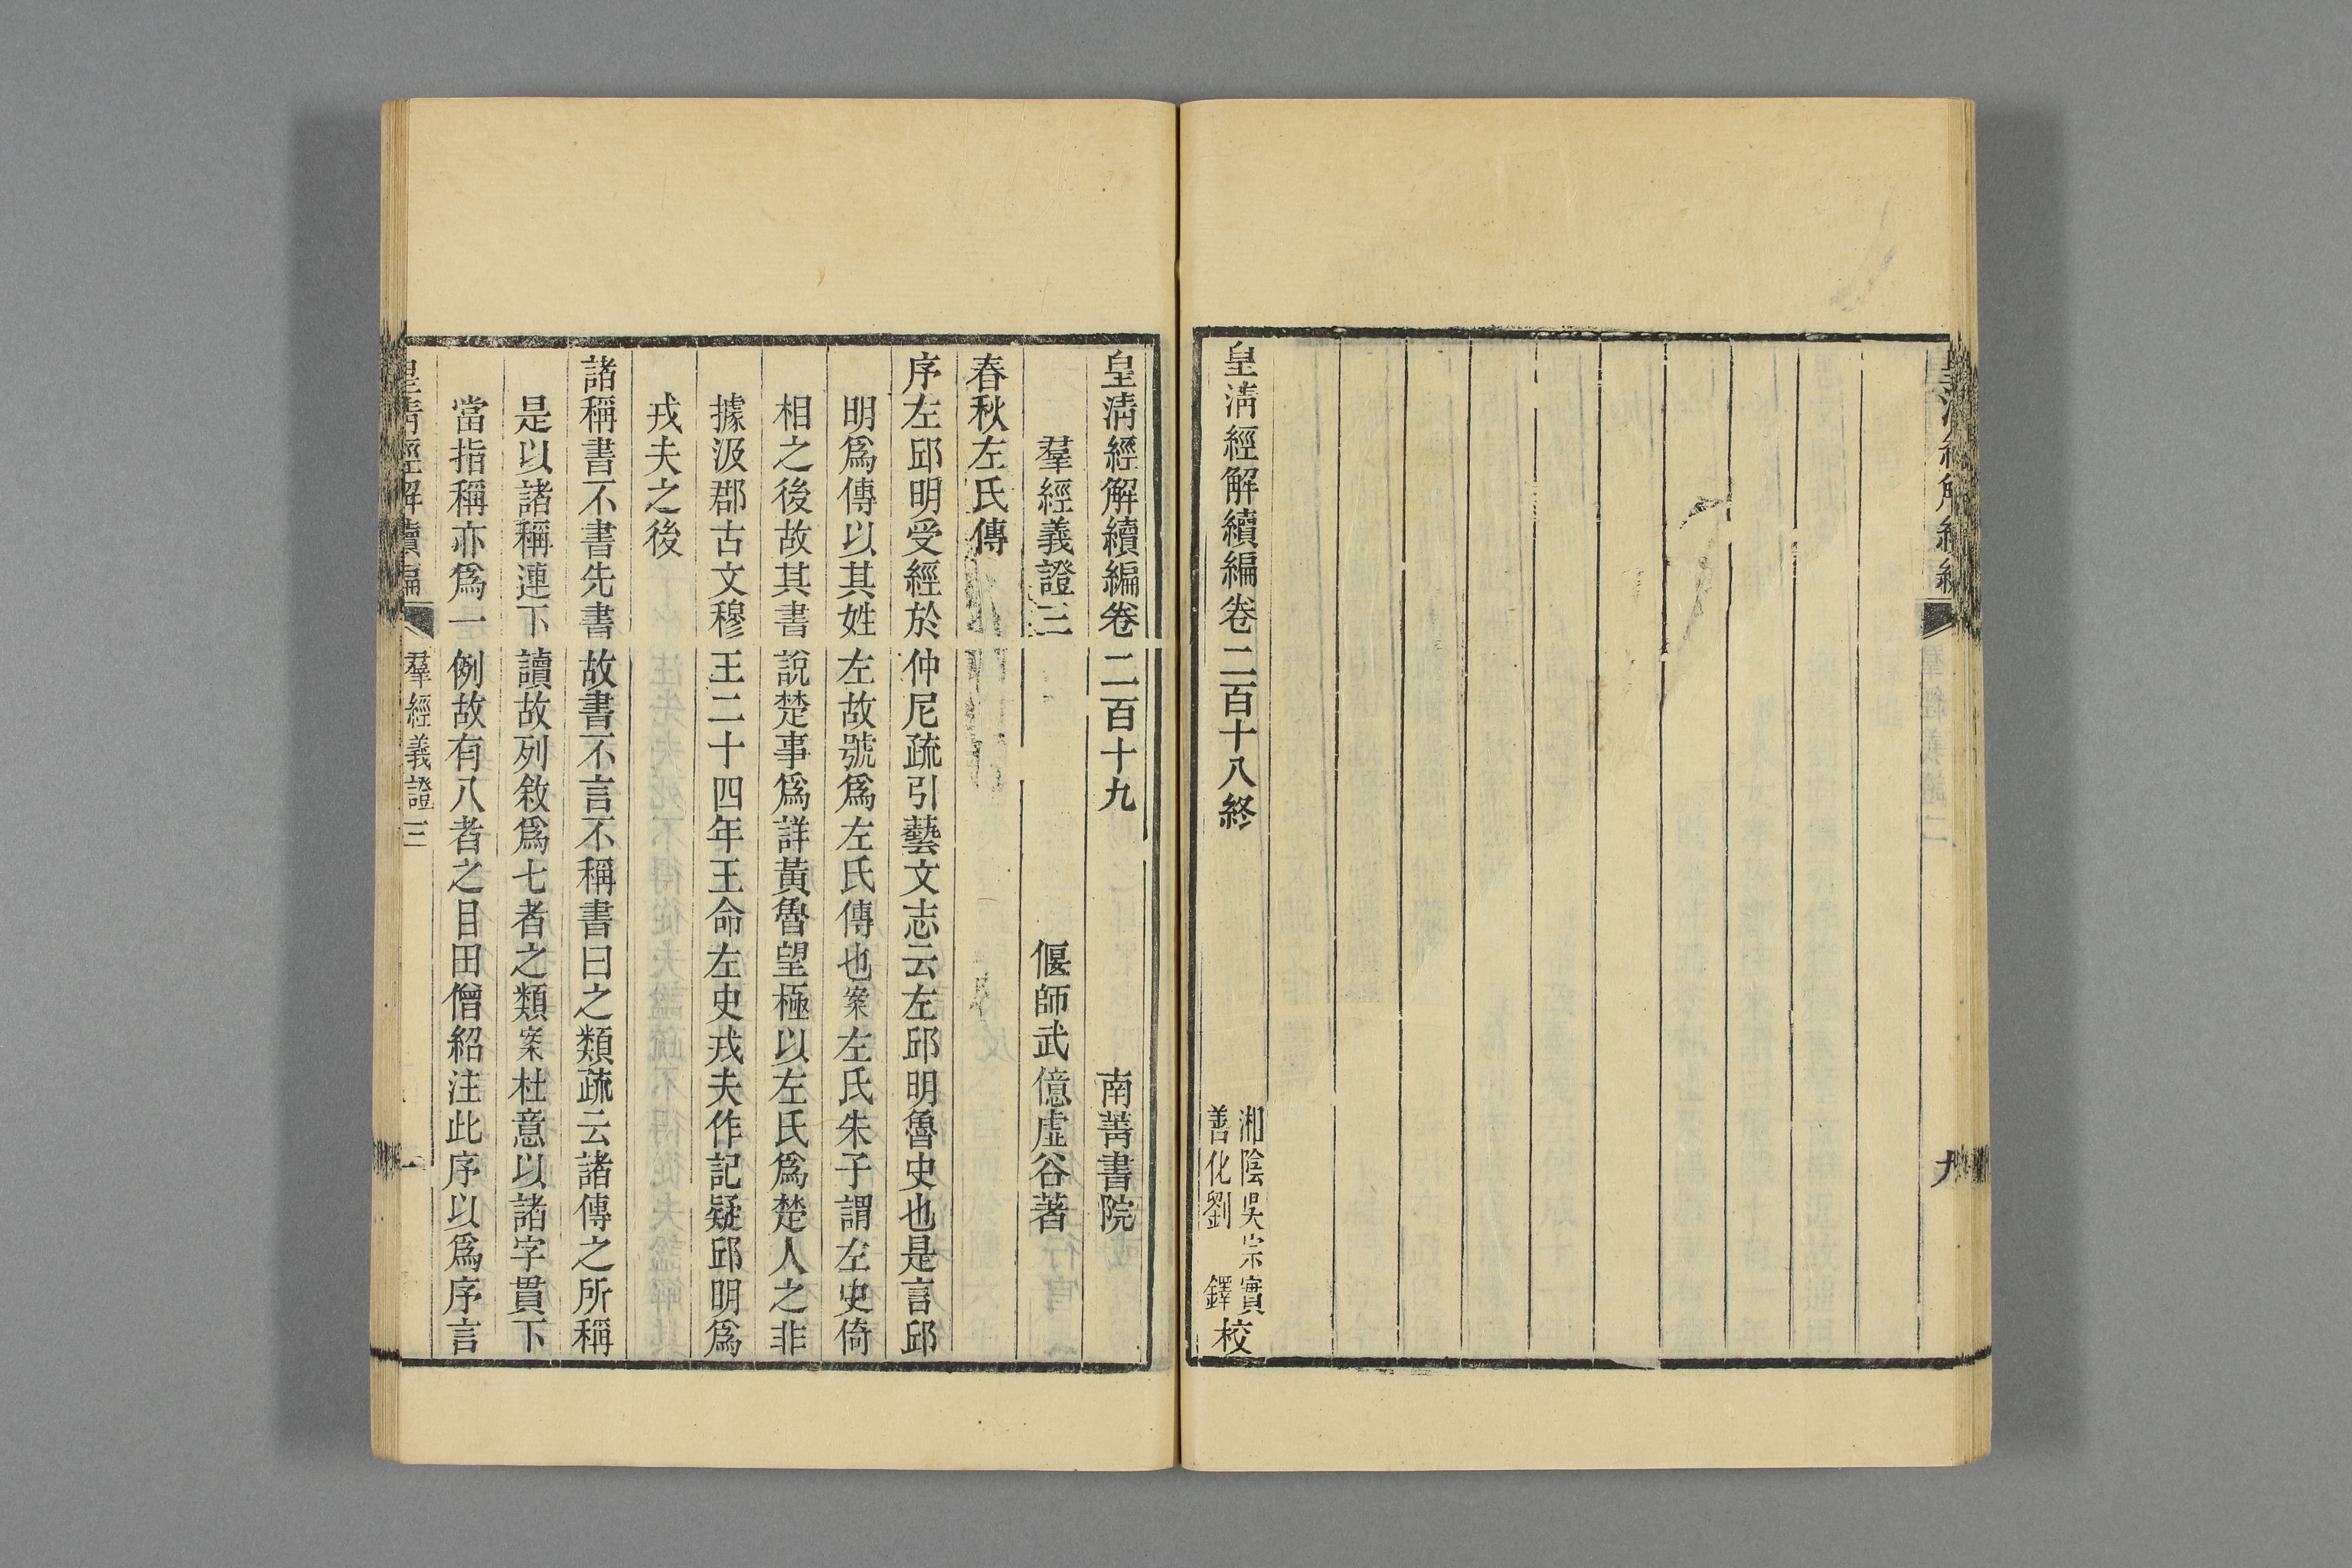 皇清經解續編
羣經義證二
九
皇清經解續編卷二百十八終
湘陰吳宗實
善化劉鐸校
皇清經解續編卷二百十九
南菁書院
羣經義證三
偃師武億虛谷著
春秋左氏傳
序左邱明受經於仲尼疏引藝文志云左邱明魯史也是言邱
明爲傳以其姓左故號爲左氏傳也案左氏朱子謂左史倚
相之後故其書說楚事爲詳黃魯望極以左氏爲楚人之非
據汲郡古文穆王二十四年王命左史戎夫作記疑邱明爲
戎夫之後
諸稱書不書先書故書不言不稱書曰之類疏云諸傳之所稱
是以諸稱連下讀故列敘爲七者之類案杜意以諸字貫下
當指稱亦爲一例故有八者之目田僧紹注此序以爲序言
皇清經解續編
羣經義證三
一